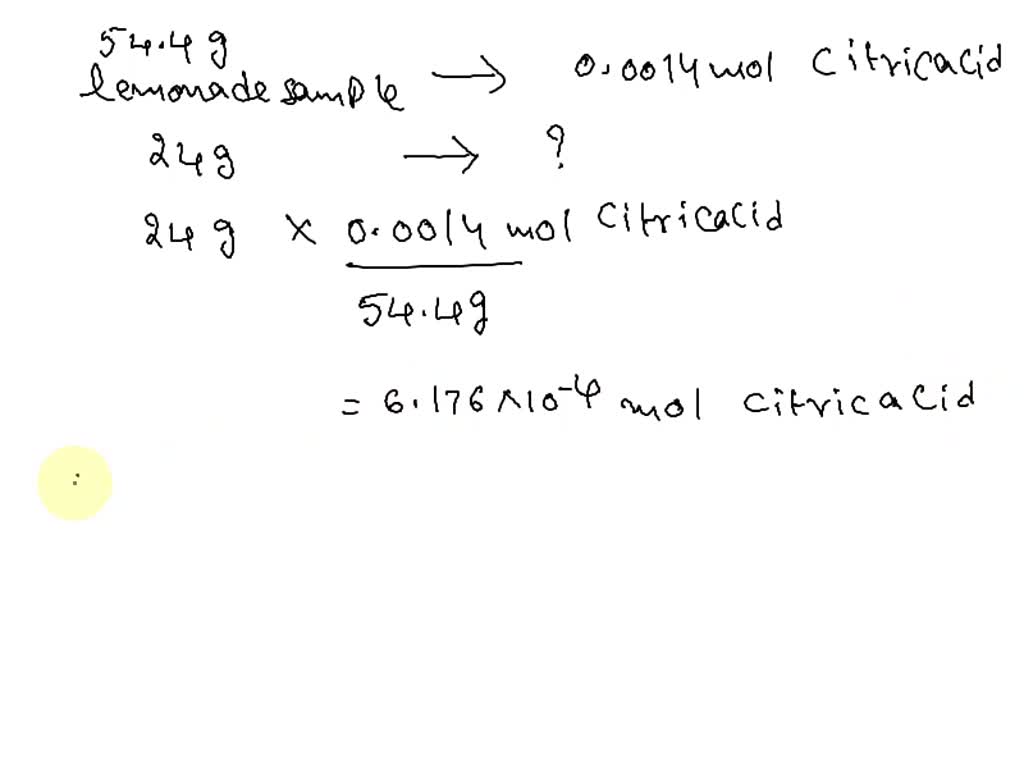 54.4g
lemonade sample → 0.0014 mol citricacid
24g → ?
24g × 0.0014 mol citricacid
54.4g
= 6.176 × 10⁻⁴ mol citricacid
: